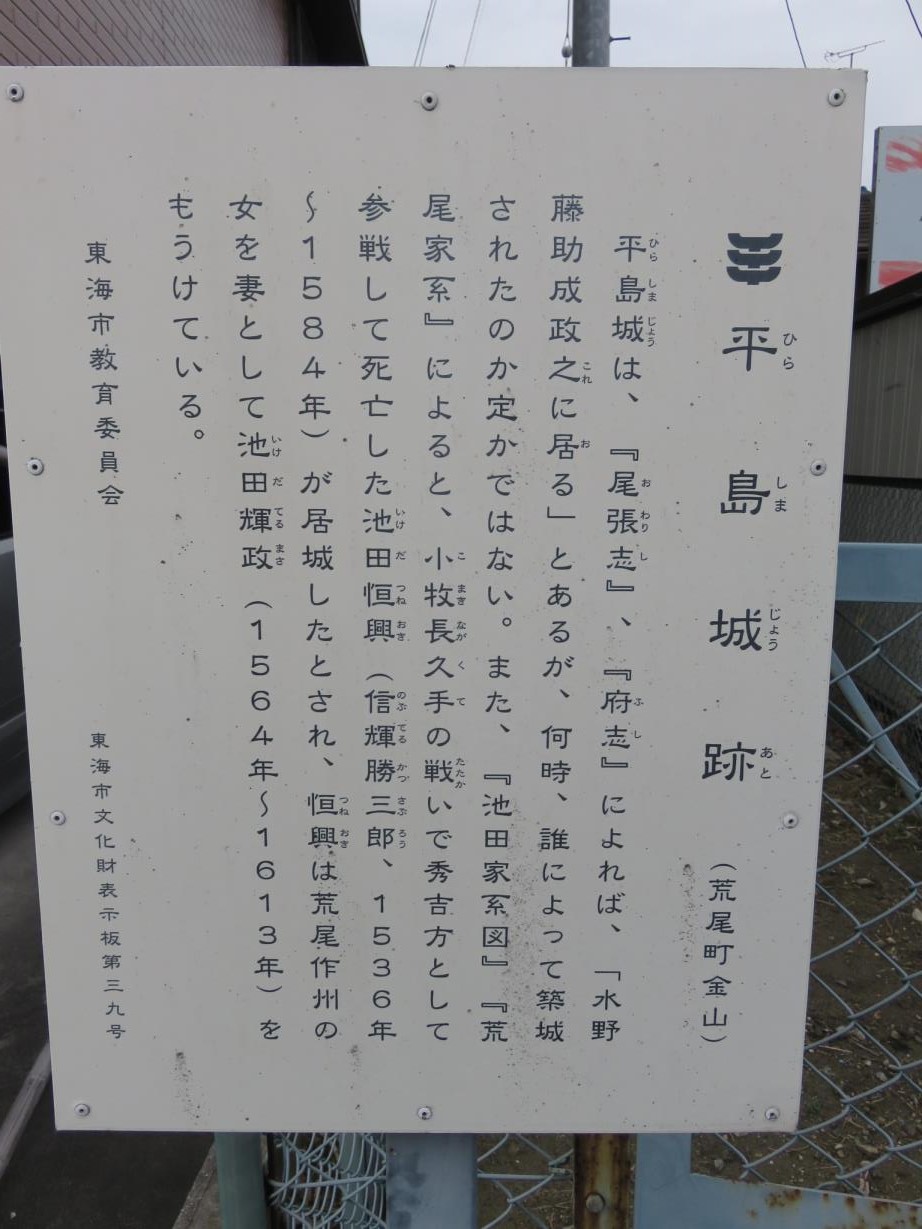 平島城跡（荒尾町金山）
平島城は、『尾張志』、『府志』によれば、「水野
藤助成政之に居る」とあるが、何時、誰によって築城
されたのか定かではない。また、『池田家系図』『荒
尾家系』によると、小牧長久手の戦いで秀吉方として
参戦して死亡した池田恒興（信輝勝三郎、１５３６年
〜１５８４年）が居城したとされ、恒興は荒尾作州の
女を妻として池田輝政（１５６４年〜１６１３年）を
もうけている。
東海市教育委員会　東海市文化財表示板第三九号